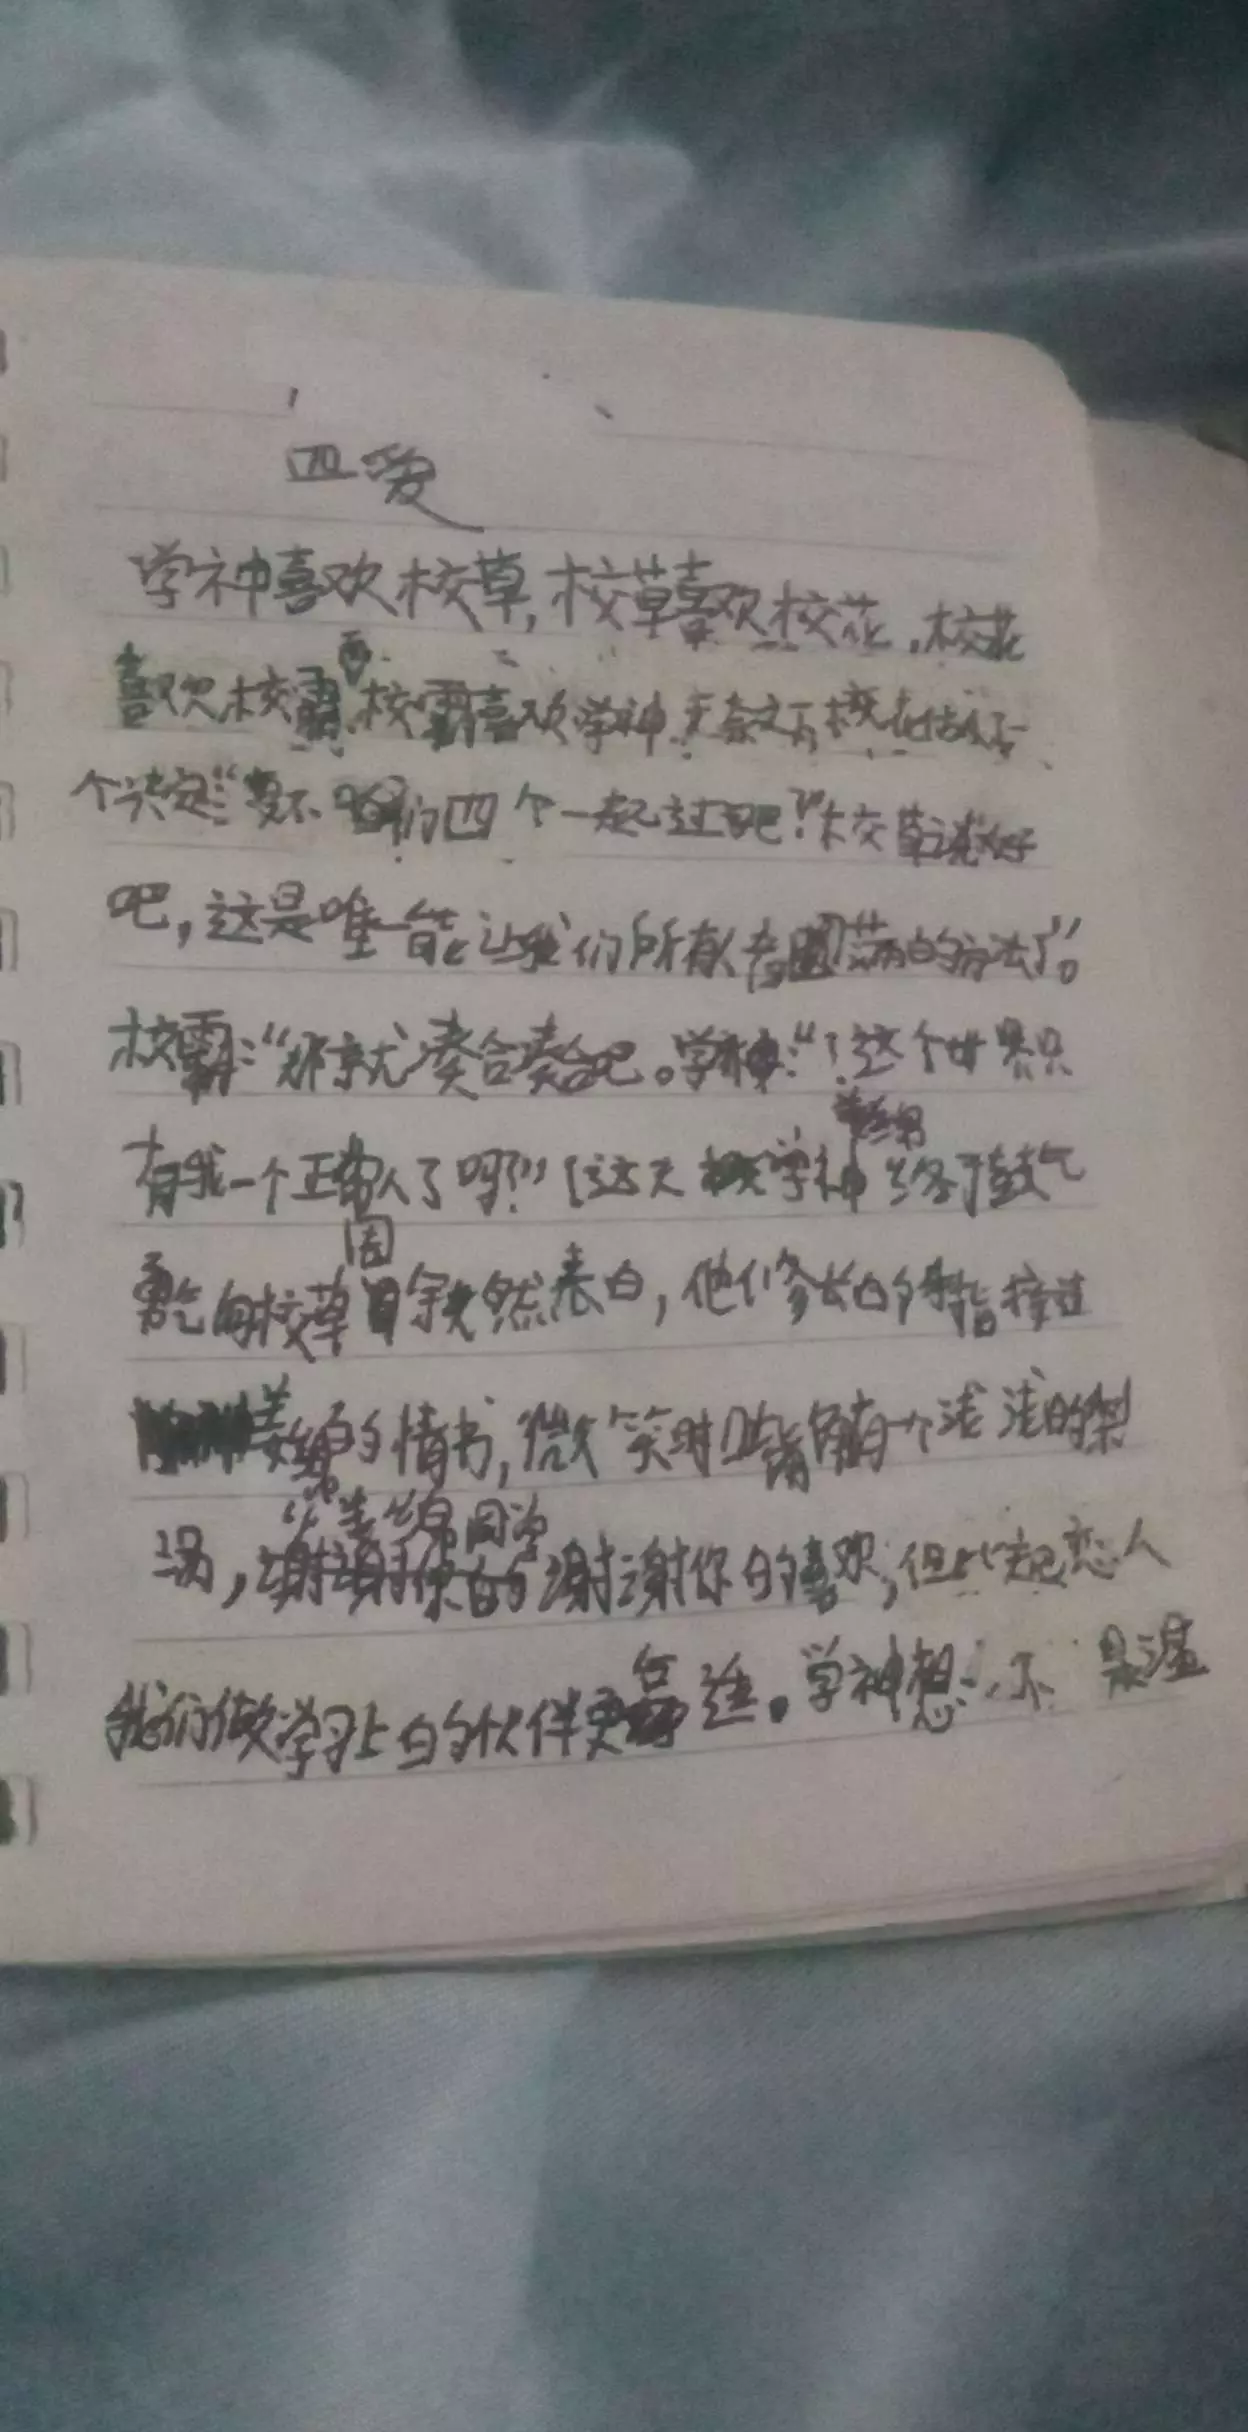 四爱
学神喜欢校草,校草喜欢校花,校花
喜欢校霸,而校霸喜欢学神.无奈之下校花做了一
个决定:“要不咱们四个一起过吧?”校草说“好
吧,这是唯一能让我们所有人都圆满的方法了”。
校霸:“那就凑合凑合吧。学神:“?这个世界只
有我一个正常人了吗?”[这天学神姜绵终于鼓气
勇气向校草周余然表白,他修长的手指接过
姜绵的情书,微笑时嘴角有一个浅浅的梨
涡,“姜绵同学谢谢你的喜欢,但比起恋人
我们做学习上的伙伴更合适。学神想:不是温